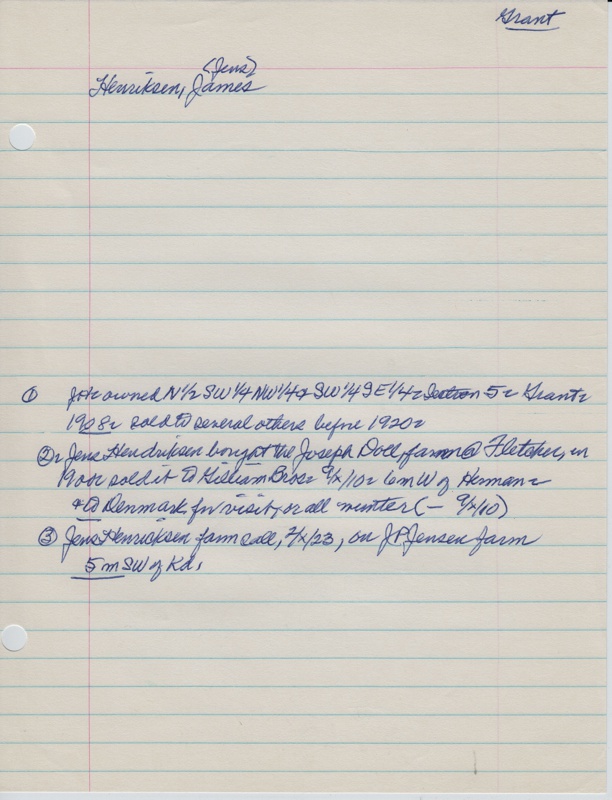 Grant
(Jens)
Henriksen, James
① JH owned N 1/2 SW 1/4 NW 1/4 & SW 1/4 SE 1/4 Section 5 Grant
1908 sold to several others before 1920
② Jens Hendriksen bought the Joseph Doll farm @ Fletcher, in
190 sold it to Gilliam Bros 9/x/10 6 m W of Herman
& to Denmark for visit, or all winter (— 9/x/10)
③ Jens Henricksen farm sale, 2/x/23, on J.P. Jensen farm
5 m SW of Kd.